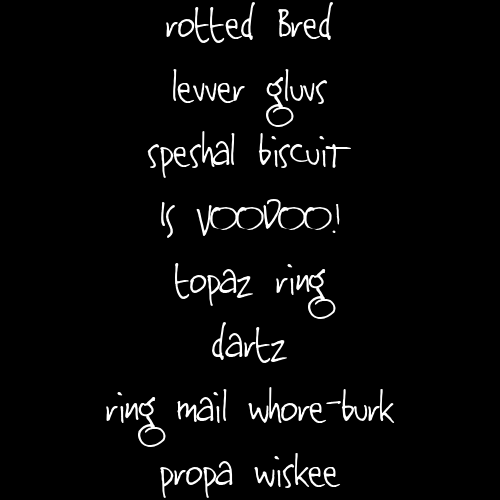 rotted Bred
levver gluvs
speshal biscuit
Is VOODOO!
topaz ring
dartz
ring mail whore-burk
propa wiskee